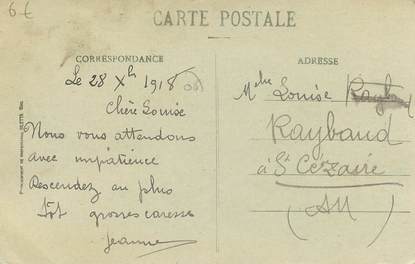 6€
CARTE POSTALE
CORRESPONDANCE
ADRESSE
Le 28 Xbre 1918
Chère Louise
Nous vous attendons
avec impatience
Descendez au plus
tot grosses caresses
Jeanne
Melle Louise
Raybaud
à St Cézaire
(AM)